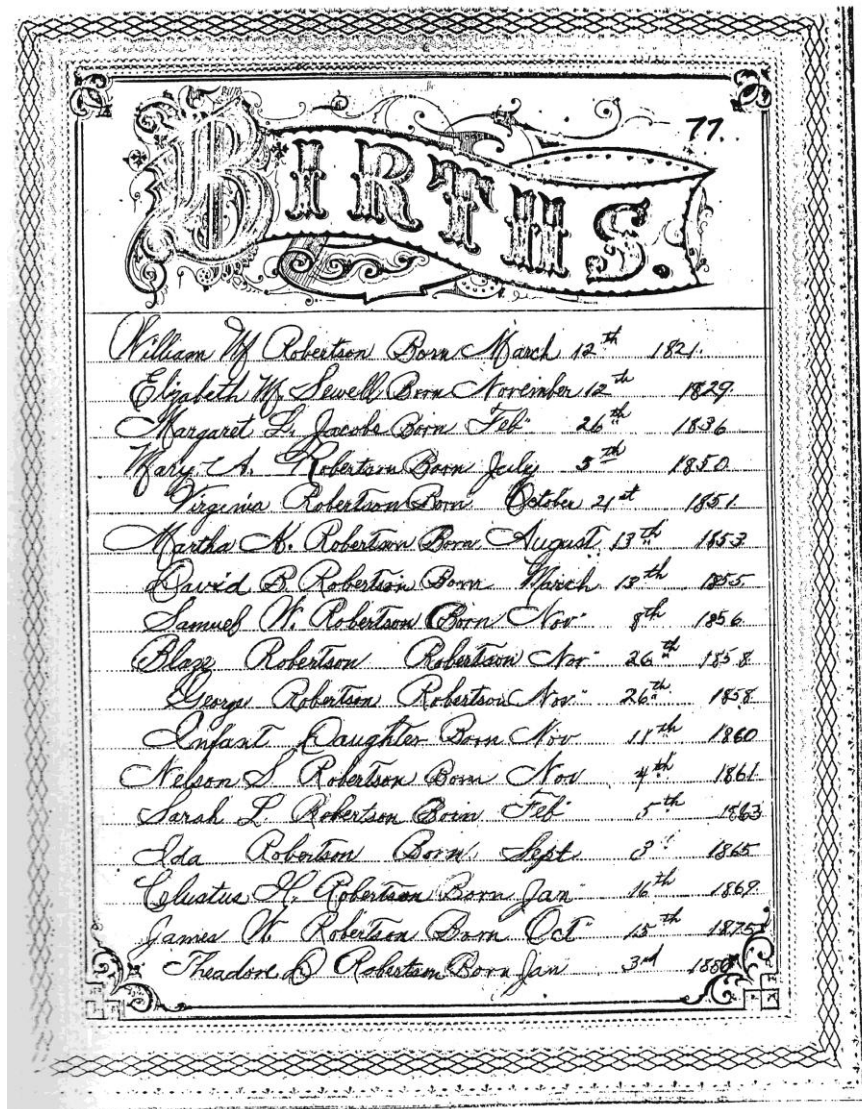 77.
BIRTHS.
William M Robertson Born March 12th 1821.
Elizabeth M. Sewell Born November 12th 1829.
Margaret L. Jacobs Born Feb" 26th 1836
Mary A. Robertson Born July 5th 1850
Virginia Robertson Born October 21st 1851.
Martha N. Robertson Born August 13th 1853
David B Robertson Born March 13th 1855
Samuel W. Robertson Born Nov" 8th 1856
Robertson Robertson Nov" 26th 1858
George Robertson Robertson Nov" 26th 1858
Infant Daughter Born Nov 11th 1860
Nelson S. Robertson Born Nov 4th 1861
Sarah L. Robertson Born Feb" 5th 1863
Ida Robertson Born. Sept 1865
H. Robertson Born Jan" 16th 1869.
James W. Robertson Born Oct" 15th 1875
Theadore Robertson Born Jan 3rd